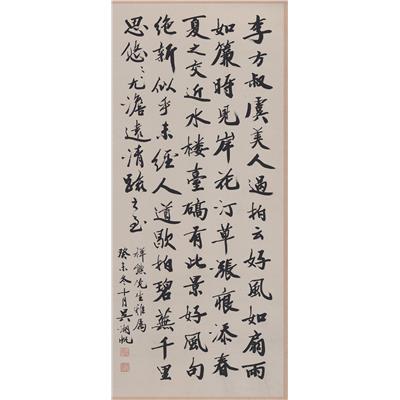 李方叔虞美人過拍云好風如扇雨
如簾時見岸花汀草漲痕添春
夏之交近水樓臺碻有此景好風句
絕新似乎未經人道歇拍碧蕪千里
思悠〻尤澹遠清疏之至
祥熊先生雅屬
癸未冬十月吳湖帆